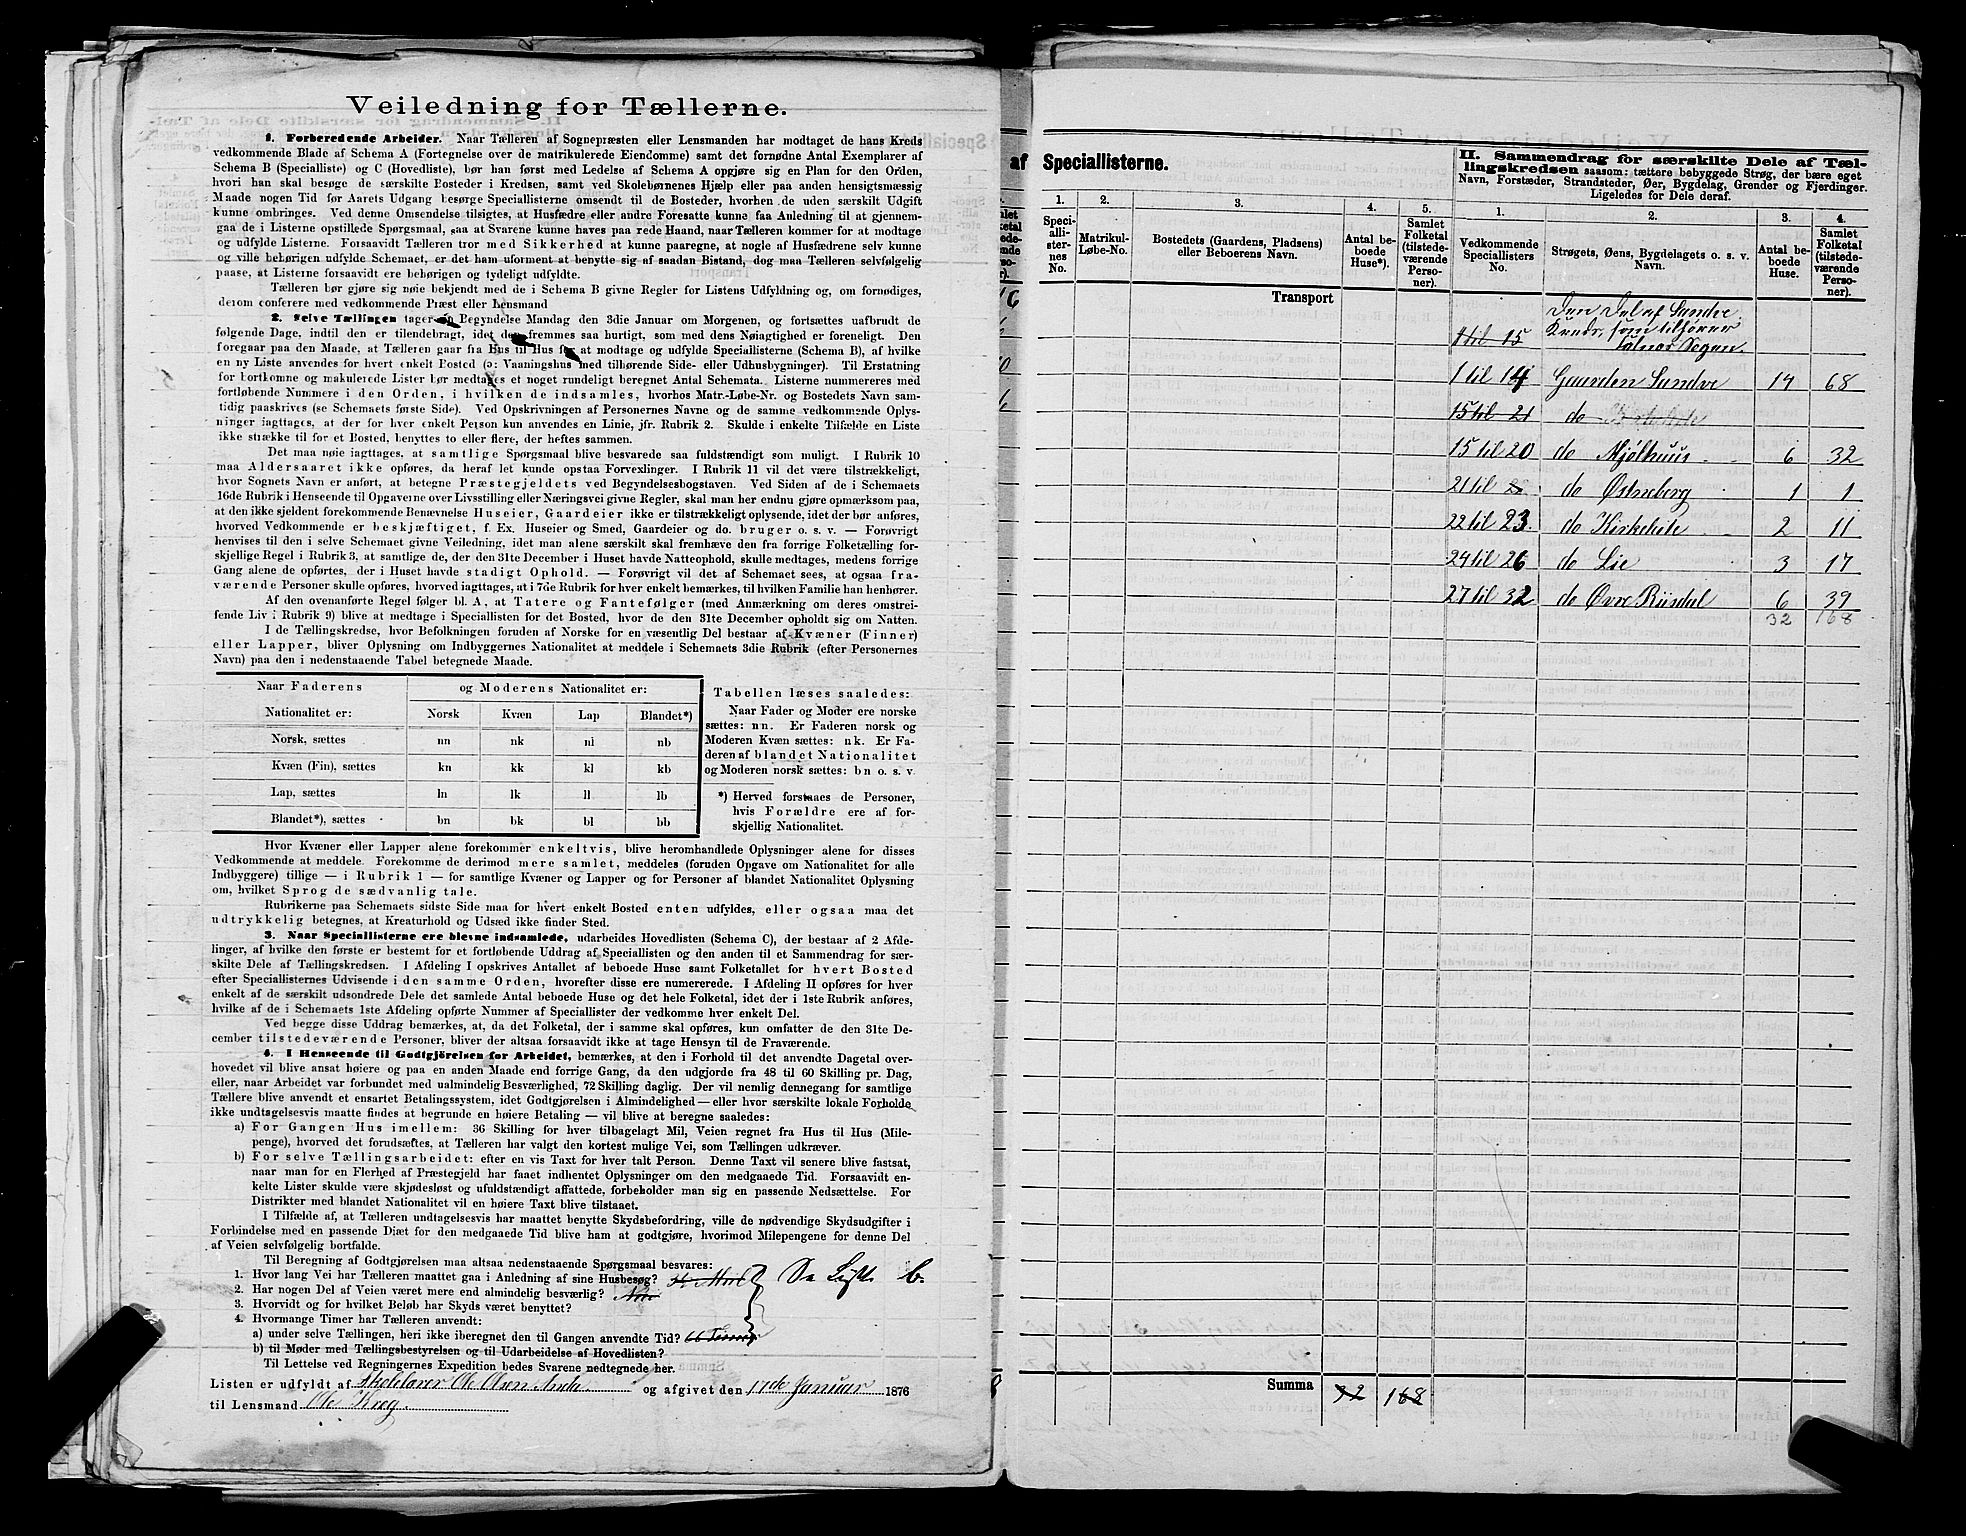 Veiledning for Tællerne.
1. Forberedende Arbeider. Naar Tælleren af Sognepræsten eller Lensmanden har modtaget de hans Kreds
vedkommende Blade af Schema A (Fortegnelse over de matrikulerede Eiendomme) samt det fornødne Antal Exemplarer af
Schema B (Specialliste) og C (Hovedliste), bør han først med Ledelse af Schema A opgjøre sig en Plan for den Orden,
hvori han skal besøge de særskilte Bosteder i Kredsen, samt ved Skolebørnenes Hjælp eller paa anden hensigtsmæssig
Maade nogen Tid før Aarets Udgang besørge Speciallisterne omsendt til de Bosteder, hvorhen de uden særskilt Udgift
kunne ombringes. Ved denne Omsendelse tilsigtes, at Husfædre eller andre Foresatte kunne faa Anledning til at gjennem-
gaa de i Listerne opstillede Spørgsmaal, saa at Svarene kunne haves paa rede Haand, naar Tælleren kommer for at modtage
og udfylde Listerne. Forsaavidt Tælleren tror med Sikkerhed at kunne paaregne, at nogle af Husfædrene selv kunne
og ville behørigen udfylde Schemaet, er det ham uforment at benytte sig af saadan Bistand, dog maa Tælleren selvfølgelig
paase, at Listerne forsaavidt ere behørigen og tydeligt udfyldte.
Tælleren bør gjøre sig nøie bekjendt med de i Schema B givne Regler for Listens Udfyldning og, om fornødiges,
derom conferere med vedkommende Præst eller Lensmand
2. Selve Tællingen tager sin Begyndelse Mandag den 3die Januar om Morgenen, og fortsættes uafbrudt de
følgende Dage, indtil den er tilendebragt, idet den fremmes saa hurtigt, som med dens Nøiagtighed er foreneligt. Den
foregaar paa den Maade, at Tælleren gaar fra Hus til Hus for at modtage og udfylde Speciallisterne (Schema B), af hvilke
en ny Liste anvendes for hvert enkelt Bosted (ɔ: Vaaningshus med tilhørende Side- eller Udhusbygninger). Til Erstatning
for bortkomne og makulerede Lister bør medtages et noget rundeligt beregnet Antal Schemata. Listerne nummereres med
fortløbende Nummere i den Orden, i hvilken de indsamles, hvorhos Matr.-Løbe-Nr. og Bostedets Navn sam-
tidig paaskrives (se Schemaets første Side). Ved Opskrivningen af Personernes Navne og de samme vedkommende Oplys-
ninger iagttages, at der for hver enkelt Person kun anvendes en Linie, jfr. Rubrik 2. Skulde i enkelte Tilfælde en Liste
ikke strække til for et Bosted, benyttes to eller flere, der heftes sammen.
Det maa nøie iagttages, at samtlige Spørgsmaal blive besvarede saa fuldstændigt som muligt. I Rubrik 10
maa Aldersaaret ikke opføres, da heraf let kunde opstaa Forvexlinger. I Rubrik 11 vil det være tilstrækkeligt,
hvor Sognets Navn er anført, at betegne Præstegjeldets ved Begyndelsesbogstaven. Ved Siden af de i Schemaets
16de Rubrik i Henseende til Opgaverne over Livsstilling eller Næringsvei givne Regler, skal man her endnu gjøre opmærksom paa,
at den ikke sjeldent forekommende Benævnelse Huseier, Gaardeier ikke er tilstrækkeligt oplysende, idet der bør anføres,
hvorved Vedkommende er beskjæftiget, f. Ex. Huseier og Smed, Gaardeier og do. bruger o. s. v. — Forøvrigt
henvises til den i selve Schemaet givne Veiledning, idet man alene særskilt skal fremhæve den fra forrige Folketælling for-
skjellige Regel i Rubrik 3, at samtlige de, der den 31te December i Huset havde Natteophold, skulle medtages, medens forrige
Gang alene de opførtes, der i Huset havde stadigt Ophold. — Forøvrigt vil det af Schemaet sees, at ogsaa fra-
værende Personer skulle opføres, hvorved iagttages, at i 7de Rubrik for hver enkelt bemærkes, til hvilken Familie han henhører.
Af den ovenanførte Regel følger bl. A, at Tatere og Fantefølger (med Anmærkning om deres omstrei-
fende Liv i Rubrik 9) blive at medtage i Speciallisten for det Bosted, hvor de den 31te December opholdt sig om Natten.
I de Tællingskredse, hvor Befolkningen foruden af Norske for en væsentlig Del bestaar af Kvæner (Finner)
eller Lapper, bliver Oplysning om Indbyggernes Nationalitet at meddele i Schemaets 3die Rubrik (efter Personernes
Navn) paa den i nedenstaaende Tabel betegnede Maade.
Naar Faderens Nationalitet er: og Moderens Nationalitet er:
Norsk Kvæn Lap Blandet*)
Norsk, sættes nn nk nl nb
Kvæn (Fin), sættes kn kk kl kb
Lap, sættes ln lk ll lb
Blandet*), sættes bn bk bl bb
Tabellen læses saaledes:
Naar Fader og Moder ere norske
sættes: nn. Er Faderen norsk og
Moderen Kvæn sættes: nk. Er Fa-
deren af blandet Nationalitet
og Moderen norsk sættes: bn o. s. v.
*) Herved forstaaes de Personer,
hvis Forældre ere af for-
skjellig Nationalitet.
Hvor Kvæner eller Lapper alene forekommer enkeltvis, blive heromhandlede Oplysninger alene for disses
Vedkommende at meddele. Forekomme de derimod mere samlet, meddeles (foruden Opgave om Nationalitet for alle
Indbyggere) tillige — i Rubrik 1 — for samtlige Kvæner og Lapper og for Personer af blandet Nationalitet Oplysning
om, hvilket Sprog de sædvanlig tale.
Rubrikerne paa Schemaets sidste Side maa for hvert enkelt Bosted enten udfyldes, eller ogsaa maa det
udtrykkelig betegnes, at Kreaturhold og Udsæd ikke finder Sted.
3. Naar Speciallisterne ere blevne indsamlede, udarbeides Hovedlisten (Schema C), der bestaar af 2 Afde-
linger, af hvilke den første er bestemt for et fortløbende Uddrag af Speciallisten og den anden til et Sammendrag for sær-
skilte Dele af Tællingskredsen. I Afdeling I opskrives Antallet af beboede Huse samt Folketallet for hvert Bosted
efter Speciallisternes Udvisende i den samme Orden, hvorefter disse ere numererede. I Afdeling II opføres for hver
enkelt af de særskilt udsondrede Dele det samlede Antal beboede Huse og det hele Folketal, idet der i 1ste Rubrik anføres,
hvilke af de i Schemaets 1ste Afdeling opførte Nummer af Speciallister der vedkomme hver enkelt Del.
Ved begge disse Uddrag bemærkes, at, da det Folketal, der i samme skal opføres, kun omfatter de den 31te De-
cember tilstedeværende Personer, bliver der altsaa forsaavidt ikke at tage Hensyn til de Fraværende.
4. I Henseende til Godtgjørelsen for Arbeidet, bemærkes, at den i Forhold til det anvendte Dagetal over-
hovedet vil blive ansat høiere og paa en anden Maade end forrige Gang, da den udgjorde fra 48 til 60 Skilling pr. Dag,
eller, naar Arbeidet var forbundet med ualmindelig Besværlighed, 72 Skilling daglig. Der vil nemlig dennegang for samtlige
Tællere blive anvendt et ensartet Betalingssystem, idet Godtgjørelsen i Almindelighed — eller hvor særskilte lokale Forholde
ikke undtagelsesvis maatte findes at begrunde en høiere Betaling — vil blive at beregne saaledes:
a) For Gangen Hus imellem: 36 Skilling for hver tilbagelagt Mil, Veien regnet fra Hus til Hus (Mile-
penge), hvorved det forudsættes, at Tælleren har valgt den kortest mulige Vei, som Tællingen udkræver.
b) For selve Tællingsarbeidet: efter en vis Taxt for hver talt Person. Denne Taxt vil senere blive fastsat,
naar man for en Flerhed af Præstegjeld har faaet indhentet Oplysninger om den medgaaede Tid. Forsaavidt en-
kelte Lister skulde være skjødesløst og ufuldstændigt affattede, forbeholder man sig en passende Nedsættelse. For
Distrikter med blandet Nationalitet vil en høiere Taxt blive tilstaaet.
I Tilfælde af, at Tælleren undtagelsesvis har maattet benytte Skydsbefordring, ville de nødvendige Skydsudgifter i
Forbindelse med en passende Diæt for den medgaaede Tid blive ham at godtgjøre, hvorimod Milepengene for denne Del
af Veien selvfølgelig bortfalde.
Til Beregning af Godtgjørelsen maa altsaa nedenstaaende Spørgsmaal besvares:
1. Hvor lang Vei har Tælleren maattet gaa i Anledning af sine Husbesøg?
2. Har nogen Del af Veien været mere end almindelig besværlig?
3. Hvorvidt og for hvilket Beløb har Skyds været benyttet?
4. Hvormange Timer har Tælleren anvendt:
a) under selve Tællingen, heri ikke iberegnet den til Gangen anvendte Tid? 66 Timer
b) til Møder med Tællingsbestyrelsen og til Udarbeidelse af Hovedlisten?
Til Lettelse ved Regningernes Expedition bedes Svarene nedtegnede her.
Listen er udfyldt af Skolelærer Ole Olsen og afgivet den 17de Januar 1876
til Lensmand Ole Krog.
af Speciallisterne.
1. 2. 3. 4. 5.
Speci-allister-nes No. Matrikul-Løbe-No. Bostedets (Gaardens, Pladsens) eller Beboerens Navn. Antal be-boede Huse*). Samlet Folketal (tilstede-værende Perso-ner).
Transport
Summa 32 168
II. Sammendrag for særskilte Dele af Tæl-
lingskredsen saasom: tættere bebyggede Strøg, der bære eget
Navn, Forstæder, Strandsteder, Øer, Bygdelag, Grender og Fjerdinger.
Ligeledes for Dele deraf.
1. 2. 3. 4.
Vedkommende Speciallisters No. Strøgets, Øens, Bygdelagets o. s. v. Navn. Antal be-boede Huse. Samlet Folketal (tilstede-værende Perso-ner).
Den Del af Sundre
1 til 15 Kreds, som tilhører
Aalnæs Sogn.
1 til 14 Gaarden Sundre 14 68
15 til 21 do
15 til 20 do Mjølhuus 6 32
21 til do Østreberg 1 1
22 til 23. do Kirkelite 2 11
24 til 26 do Lie 3 17
27 til 32 do Øvre Riisdal 6 39
32 168